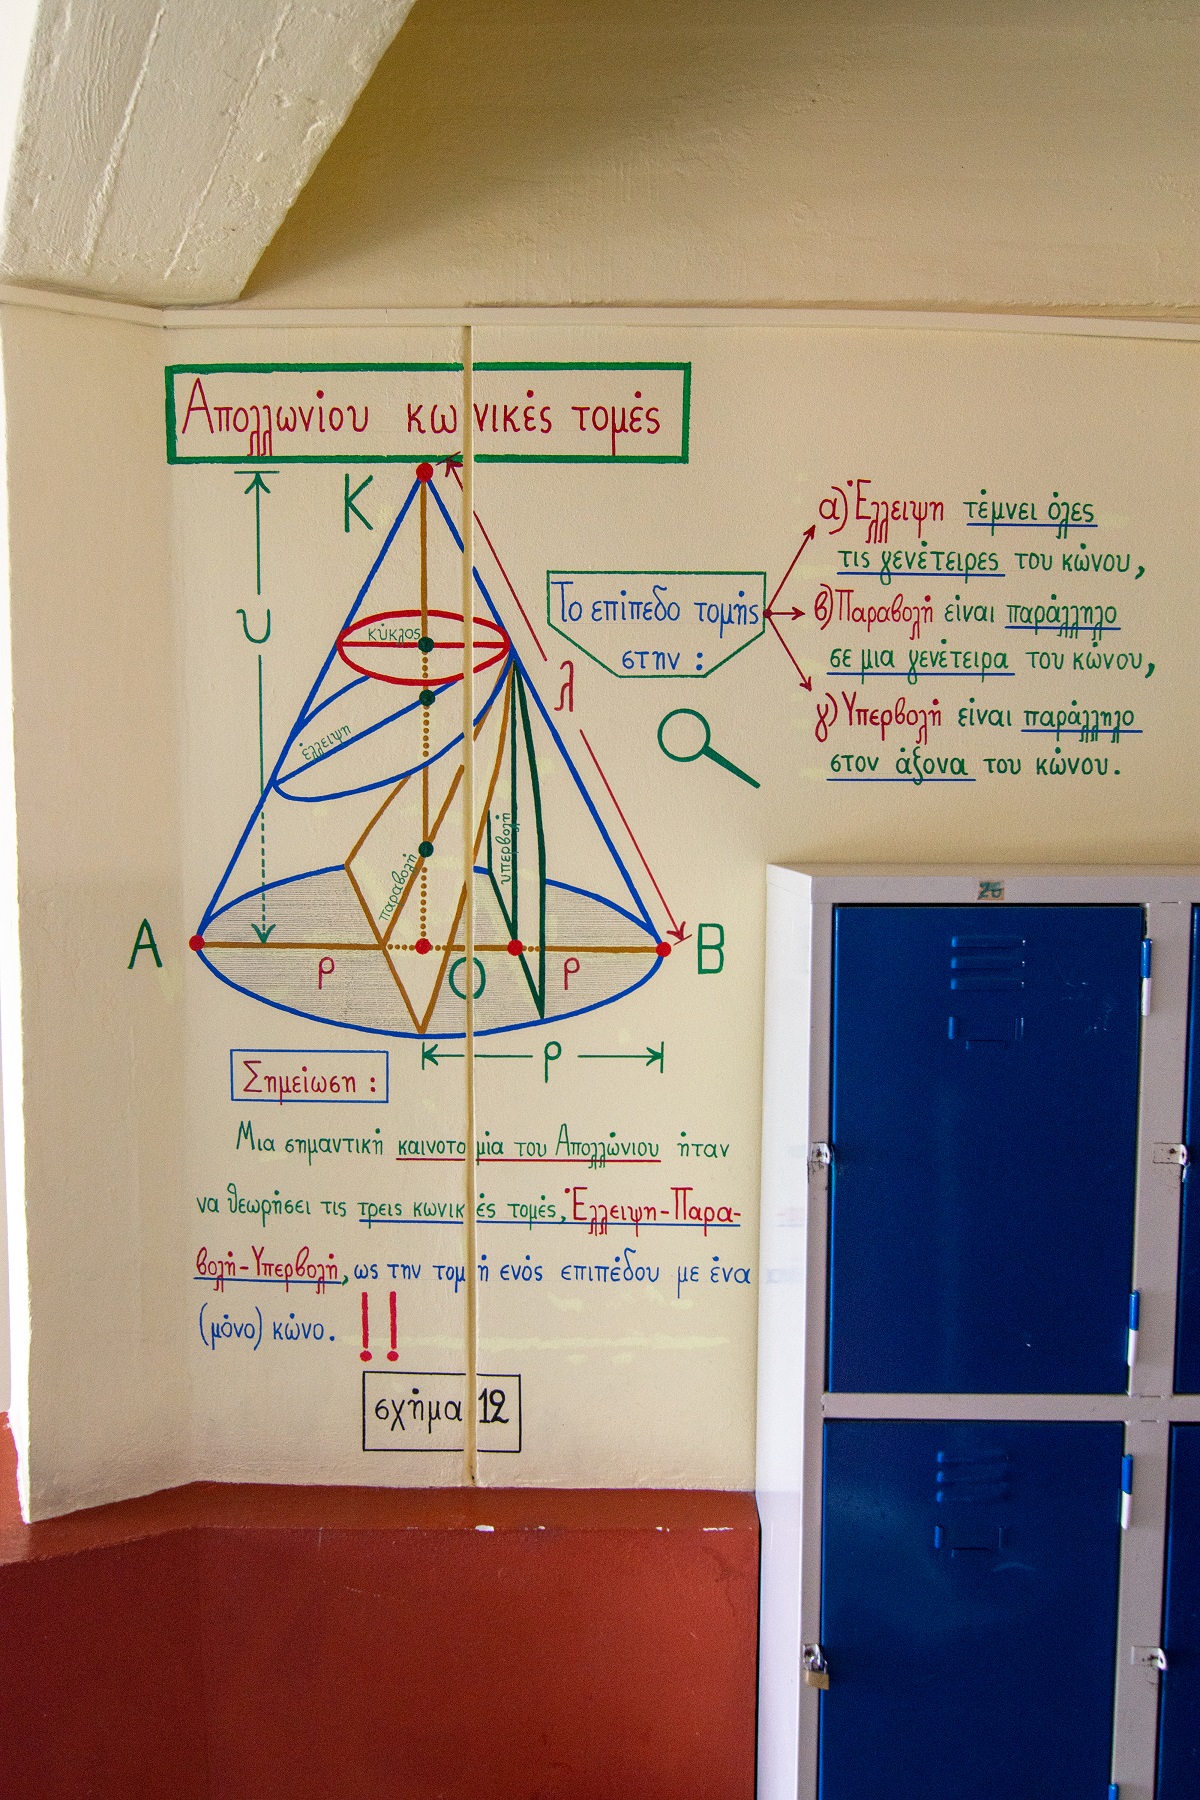 Απολλωνίου κωνικές τομές
Κ
υ
λ
κύκλος
έλλειψη
παραβολή
υπερβολή
Α
Β
Ο
ρ
ρ
ρ
Το επίπεδο τομής
στην :
α) Έλλειψη τέμνει όλες
τις γενέτειρες του κώνου,
β) Παραβολή είναι παράλληλο
σε μια γενέτειρα του κώνου,
γ) Υπερβολή είναι παράλληλο
στον άξονα του κώνου.
Σημείωση :
Μια σημαντική καινοτομία του Απολλώνιου ήταν
να θεωρήσει τις τρεις κωνικές τομές, Έλλειψη-Παρα-
βολή-Υπερβολή, ως την τομή ενός επιπέδου με ένα
(μόνο) κώνο. !!
σχήμα 12
26